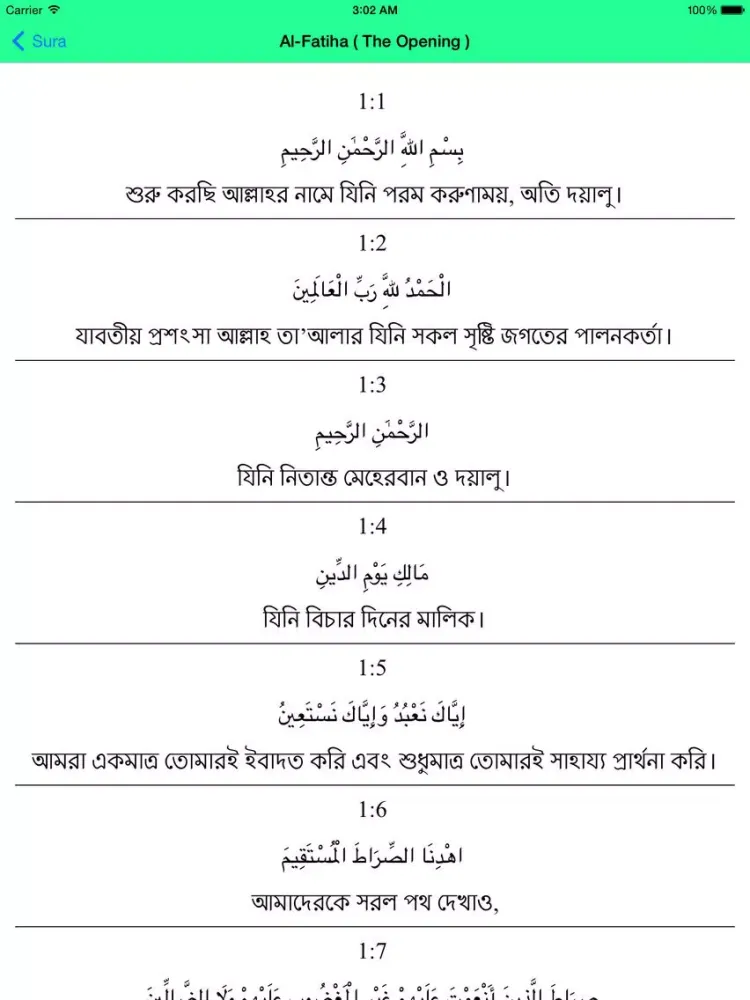 Carrier 3:02 AM 100%
Sura Al-Fatiha ( The Opening )
1:1
بِسْمِ اللَّهِ الرَّحْمَٰنِ الرَّحِيمِ
শুরু করছি আল্লাহর নামে যিনি পরম করুণাময়, অতি দয়ালু।
1:2
الْحَمْدُ لِلَّهِ رَبِّ الْعَالَمِينَ
যাবতীয় প্রশংসা আল্লাহ তা’আলার যিনি সকল সৃষ্টি জগতের পালনকর্তা।
1:3
الرَّحْمَٰنِ الرَّحِيمِ
যিনি নিতান্ত মেহেরবান ও দয়ালু।
1:4
مَالِكِ يَوْمِ الدِّينِ
যিনি বিচার দিনের মালিক।
1:5
إِيَّاكَ نَعْبُدُ وَإِيَّاكَ نَسْتَعِينُ
আমরা একমাত্র তোমারই ইবাদত করি এবং শুধুমাত্র তোমারই সাহায্য প্রার্থনা করি।
1:6
اهْدِنَا الصِّرَاطَ الْمُسْتَقِيمَ
আমাদেরকে সরল পথ দেখাও,
1:7
صِرَاطَ الَّذِينَ أَنْعَمْتَ عَلَيْهِمْ غَيْرِ الْمَغْضُوبِ عَلَيْهِمْ وَلَا الضَّالِّينَ